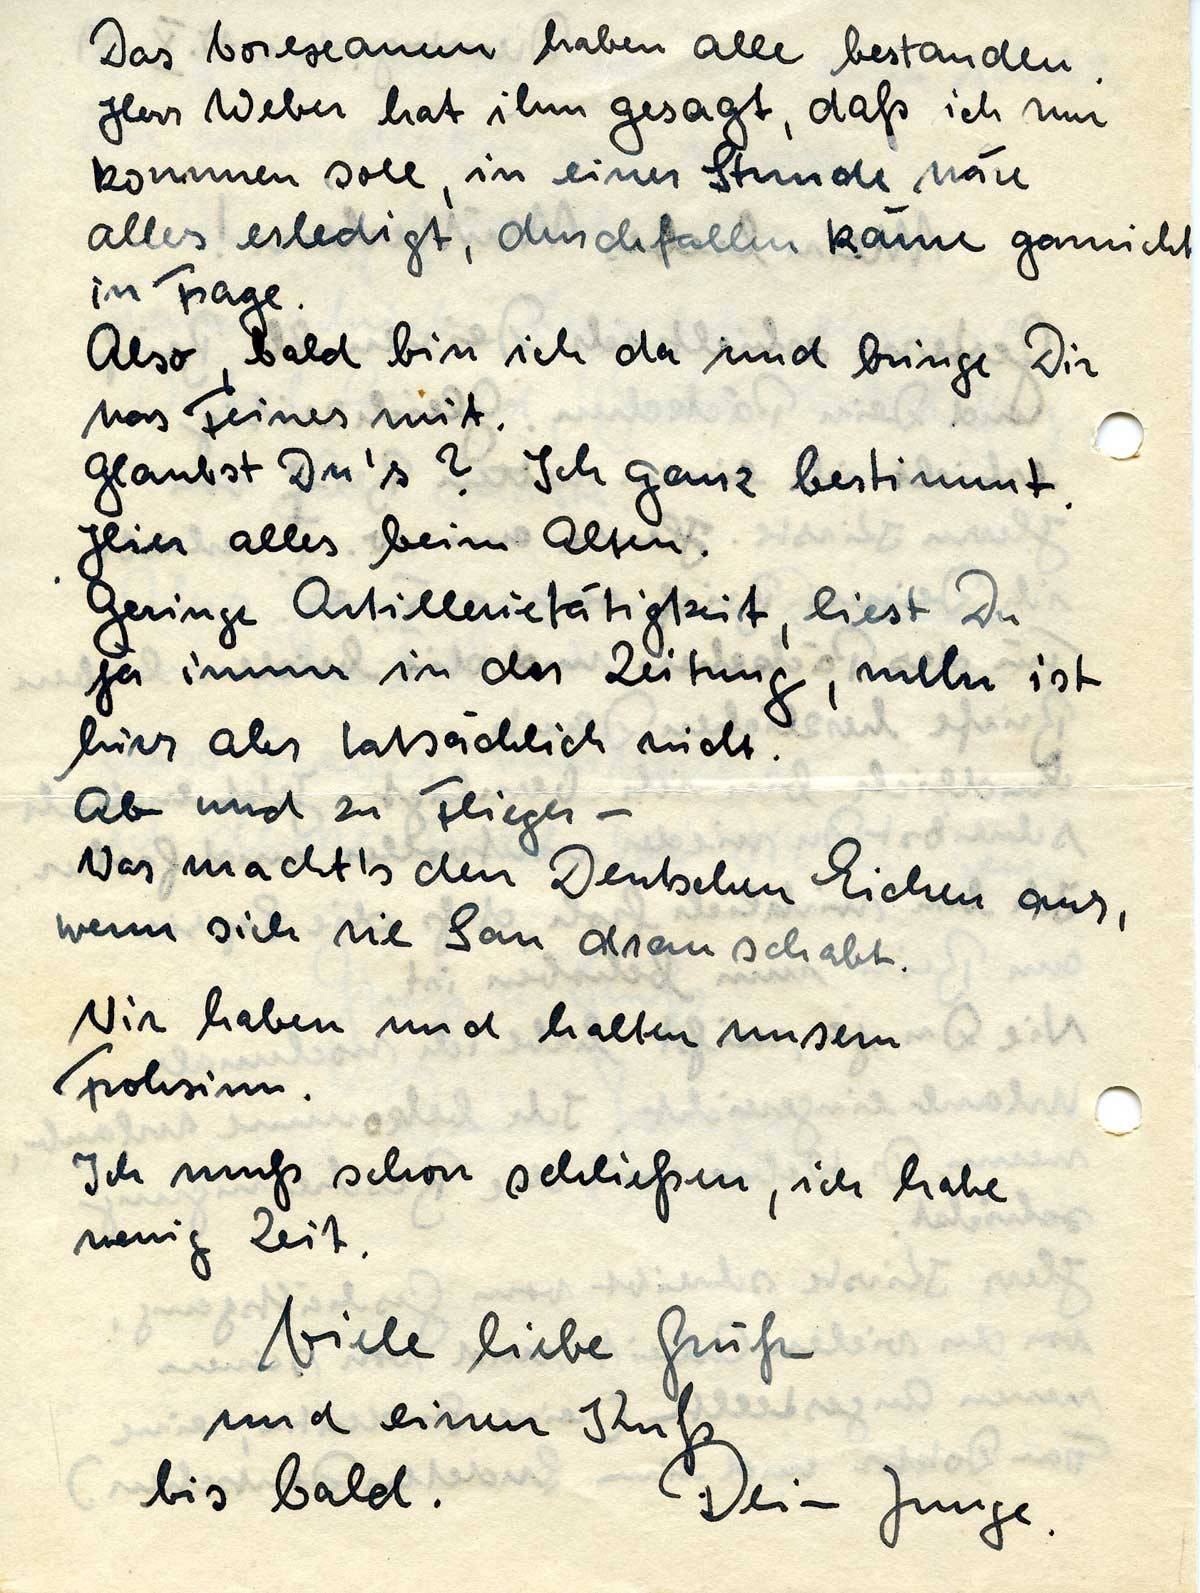 Das Vorexamen haben alle bestanden.
Herr Weber hat ihm gesagt, daß ich nur
kommen soll, in einer Stunde wäre
alles erledigt, durchfallen käme garnicht
in Frage.
Also, bald bin ich da und bringe Dir
was Feines mit.
Glaubst Du's? Ich ganz bestimmt.
Hier alles beim Alten.
Geringe Artillerietätigkeit, liest Du
ja immer in der Zeitung, mehr ist
hier aber tatsächlich nicht.
Ab und zu Flieger –
Was macht's den Deutschen Eichen aus,
wenn sich ne Sau dran schabt.
Wir haben und halten unsern
Frohsinn.
Ich muß schon schließen, ich habe
wenig Zeit.
Viele liebe Grüße
und einen Kuß
bis bald. Dein Junge.